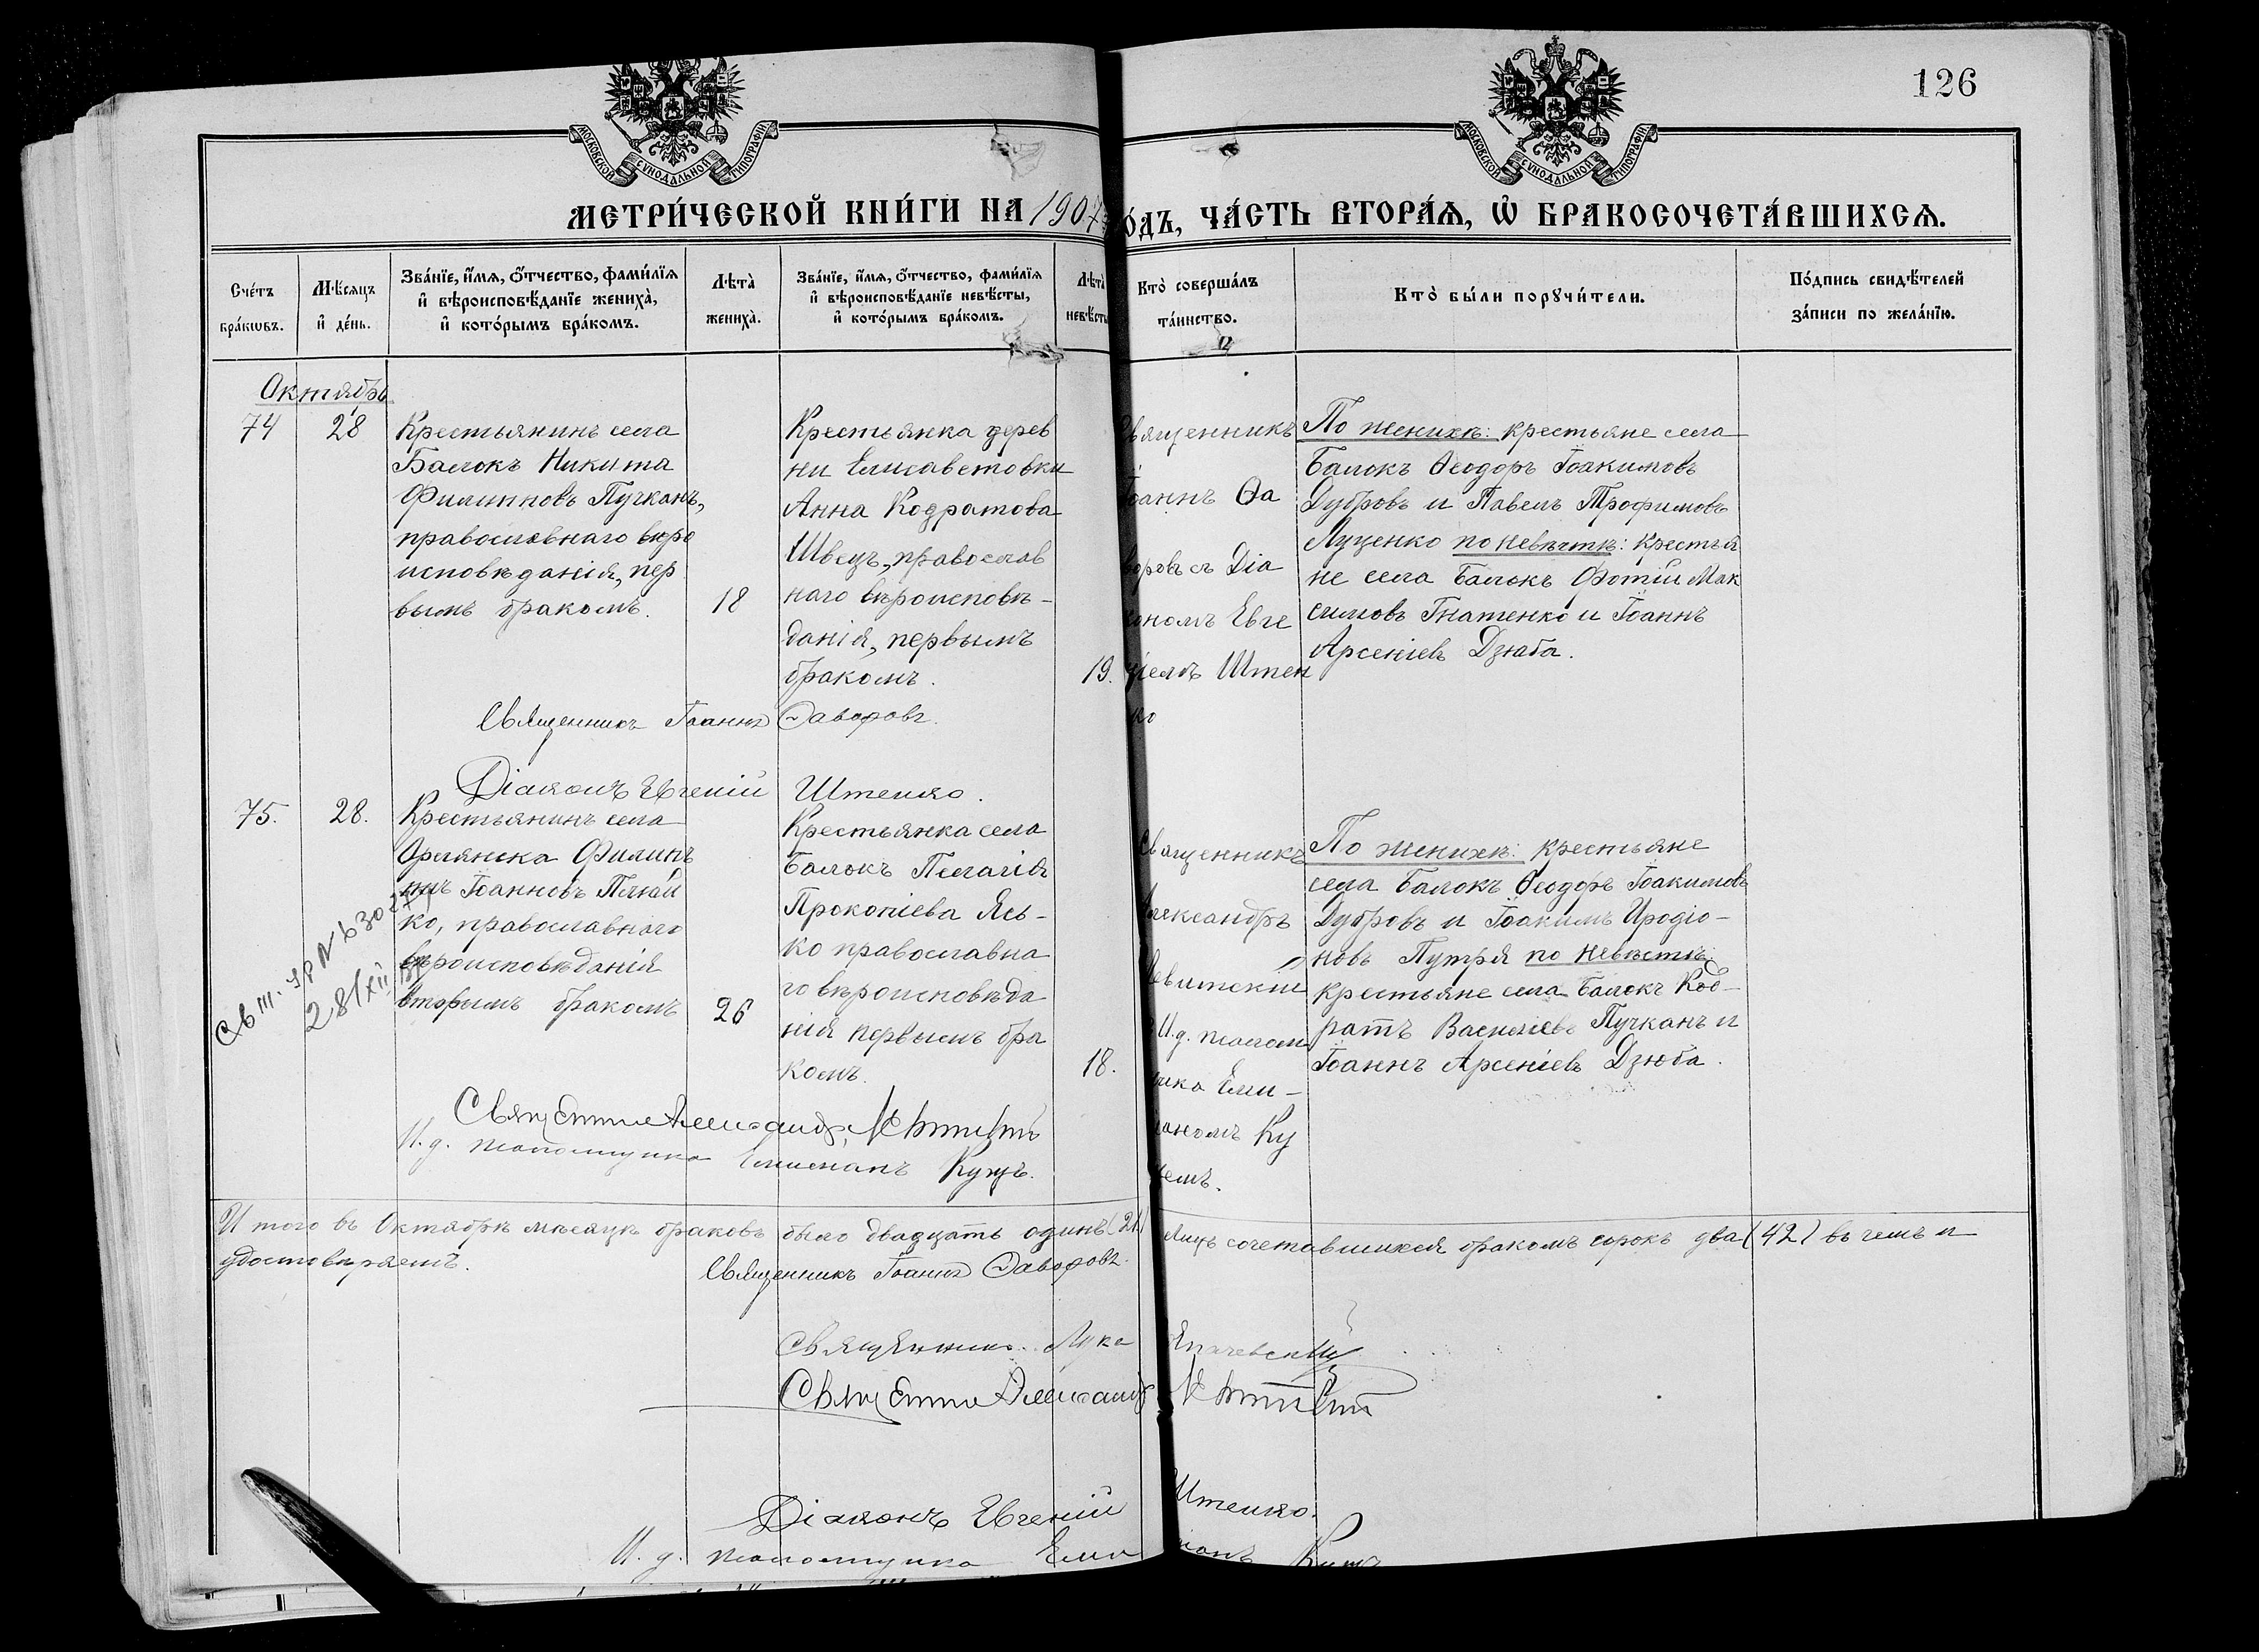 126
МОСКОВСКОЙ СѴНОДАЛЬНОЙ ТИПОГРАФІИ
МОСКОВСКОЙ СѴНОДАЛЬНОЙ ТИПОГРАФІИ
МЕТРИ́ЧЕСКОЙ КНИ́ГИ НА 1907
О́ДЪ, ЧА́СТЬ ВТОРА́Ѧ, Ѡ҆ БРАКОСОЧЕТА́ВШИХСѦ.
Сче́тъ
бра́кѡвъ.
Мѣ́сѧцъ
и҆ де́нь.
Зва́нїе, и҆́мѧ, ѻ҆́тчество, фами́лїѧ
и҆ вѣроисповѣ́данїе жениха̀,
и҆ кото́рымъ бра́комъ.
Лѣта̀
жениха̀.
Зва́нїе, и҆́мѧ, ѻ҆́тчество, фами́лїѧ
и҆ вѣроисповѣ́данїе невѣ́сты,
и҆ кото́рымъ бра́комъ.
Лѣта̀
невѣ́сты
Кто̀ соверша́лъ
та́инство.
Кто̀ бы́ли порꙋчи́тели.
По́дпись свидѣ́телей
за́писи по жела́нїю.
Октябрь
74
28
Крестьянинъ села
Балокъ Никита
Филипповъ Пучканъ,
православнаго вѣро
исповѣданія, пер
вымъ бракомъ.
18
Крестьянка дерев
ни Елисаветовки
Анна Кодратова
Швецъ, православ
наго вѣроисповѣ-
данія, первымъ
бракомъ.
19.
Священникъ
Іоаннъ Ѳа
воровъ съ Діа
кономъ Евге
ніемъ Штен
ко
По женихѣ: крестьяне села
Балокъ Ѳеодоръ Іоакимовъ
Дубровъ и Павелъ Трофимовъ
Луценко по невѣстѣ: крестья
не села Балокъ Фотій Мак
симовъ Гнатенко и Іоаннъ
Арсеніевъ Дзюба.
Священникъ Іоаннъ Ѳаворовъ.
Діаконъ Евгеній Штенко.
75.
28.
Крестьянинъ села
Орлянска Филип
пъ Іоанновъ
ко, православнаго
вѣроисповѣданія
вторымъ бракомъ
26
Крестьянка села
Балокъ Пелагія
Прокопіева Ясь-
ко православна
го вѣроисповѣда
нія первымъ бра
комъ.
18.
Священникъ
Александръ
И.д. псалом
щика Еми-
ліаномъ Ку
цемъ.
По женихѣ: крестьяне
села Балокъ Ѳеодоръ Іоакимовъ
Дубровъ и Іоакимъ Иродіо-
новъ Путря по невѣстѣ:
крестьяне села Балокъ Код-
ратъ Василіевъ Пучканъ и
Іоаннъ Арсеніевъ Дзюба.
28/XII
Священникъ Александръ
И. д. псаломщика Емиліанъ Куцъ.
Итого въ Октябрѣ мѣсяцѣ браковъ было двадцать одинъ (21) лицъ сочетавшихся бракомъ сорокъ два (42) въ чемъ и
удостовѣряемъ.
Священникъ Іоаннъ Ѳаворовъ.
Священникъ Лука
Священникъ Александръ
Діаконъ Евгеній Штенко.
И. д. псаломщика Емиліанъ Куцъ